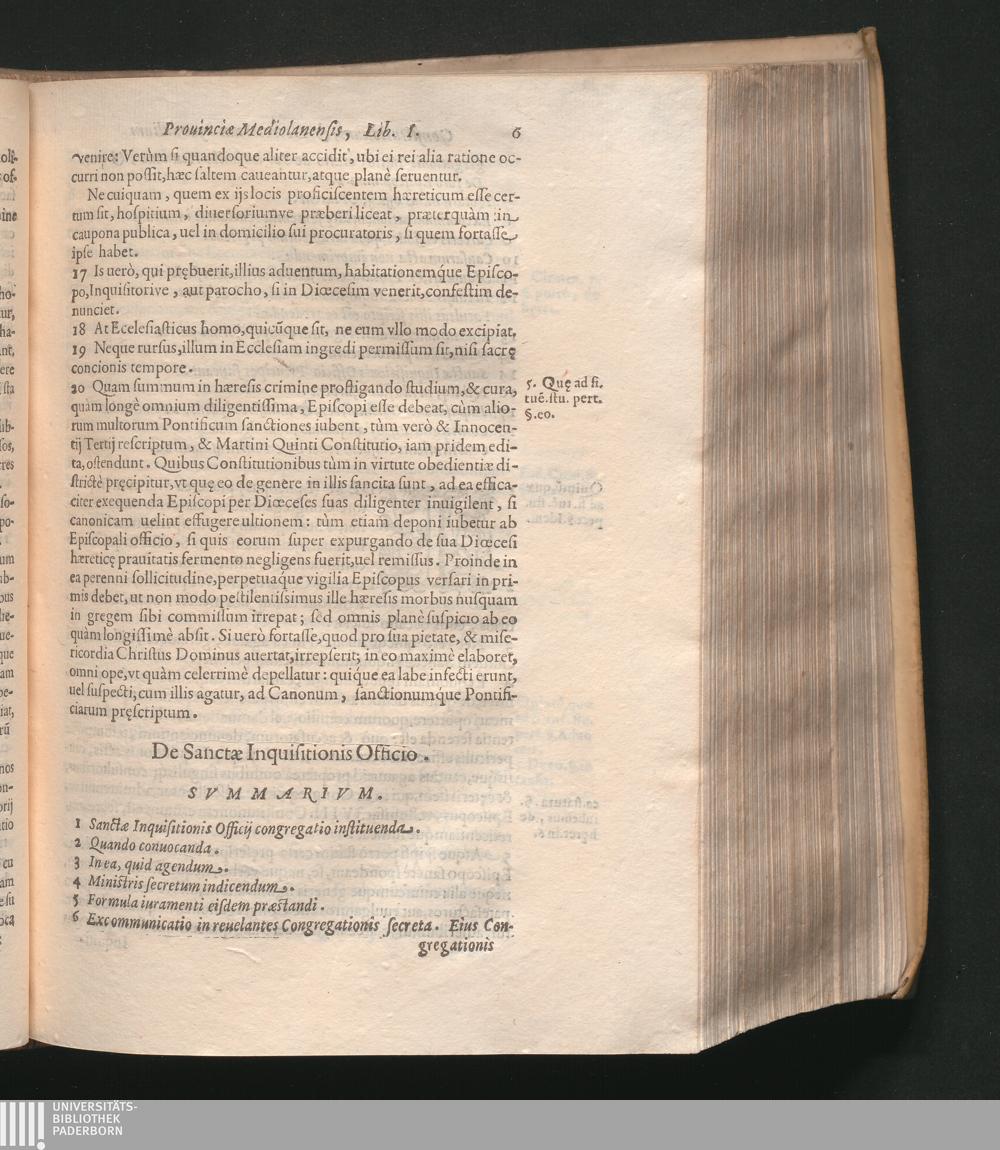 Prouinciæ Mediolanensis, Lib. I. 6
venire: Verùm si quandoque aliter accidit, ubi ei rei alia ratione oc-
curri non possit, hæc saltem caueantur, atque planè seruentur.
Ne cuiquam, quem ex ijs locis proficiscentem hæreticum esse cer-
tum sit, hospitium, diuersoriumve præberi liceat, præterquàm in
caupona publica, uel in domicilio sui procuratoris, si quem fortasse
ipse habet.
17 Is uerò, qui prębuerit, illius aduentum, habitationemque Episco-
po, Inquisitorive, aut parocho, si in Diœcesim venerit, confestim de-
nunciet.
18 At Ecclesiasticus homo, quicũque sit, ne eum vllo modo excipiat,
19 Neque rursus, illum in Ecclesiam ingredi permissum sit, nisi sacrę
concionis tempore.
20 Quàm summum in hæresis crimine profligando studium, & cura,
quàm longè omnium diligentissima, Episcopi esse debeat, cùm alio-
rum multorum Pontificum sanctiones iubent, tùm verò & Innocen-
tij Tertij rescriptum, & Martini Quinti Constitutio, iam pridem edi-
ta, ostendunt. Quibus Constitutionibus tùm in virtute obedientiæ di-
strictè pręcipitur, vt quę eo de genere in illis sancita sunt, ad ea effica-
citer exequenda Episcopi per Diœceses suas diligenter inuigilent, si
canonicam uelint effugere ultionem: tùm etiam deponi iubetur ab
Episcopali officio, si quis eorum super expurgando de sua Diœcesi
hæreticę prauitatis fermento negligens fuerit, uel remissus. Proinde in
ea perenni sollicitudine, perpetuaque vigilia Episcopus versari in pri-
mis debet, ut non modo pestilentissimus ille hæresis morbus nusquam
in gregem sibi commissum irrepat; sed omnis planè suspicio ab eo
quàm longissimè absit. Si uerò fortasse, quod pro sua pietate, & mise-
ricordia Christus Dominus auertat, irrepserit; in eo maximè elaboret,
omni ope, vt quàm celerrimè depellatur: quique ea labe infecti erunt,
uel suspecti; cum illis agatur, ad Canonum, sanctionumque Pontifi-
ciarum pręscriptum.
5. Quę ad fi.
tuẽ. stu. pert.
§. eo.
De Sanctæ Inquisitionis Officio.
SVMMARIVM.
1 Sanctæ Inquisitionis Officij congregatio instituenda.
2 Quando conuocanda.
3 In ea, quid agendum.
4 Ministris secretum indicendum.
5 Formula iuramenti eisdem præstandi.
6 Excommunicatio in reuelantes Congregationis secreta. Eius Con-
gregationis
UNIVERSITÄTS-
BIBLIOTHEK
PADERBORN